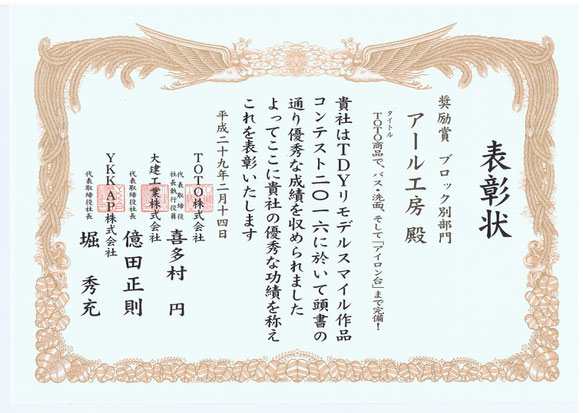 表彰状
奨励賞 ブロック別部門
アール工房 殿
タイトル
TOTO商品で、バス・洗面、そして「アイロン台」まで完備！
貴社はTDYリモデルスマイル作品
コンテスト二〇一六に於いて頭書の
通り優秀な成績を収められました
よってここに貴社の優秀な功績を称え
これを表彰いたします
平成二十九年二月十四日
TOTO株式会社
代表取締役
社長執行役員
喜多村 円
大建工業株式会社
代表取締役社長
億田正則
YKK AP株式会社
代表取締役社長
堀 秀充